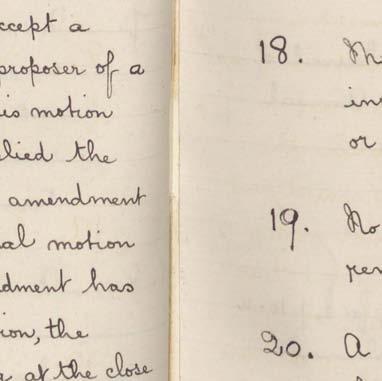 ccept a
proposer of a
is motion
lied the
amendment
al motion
dment has
ion, the
at the close
18.
in
or
19. No
20. A